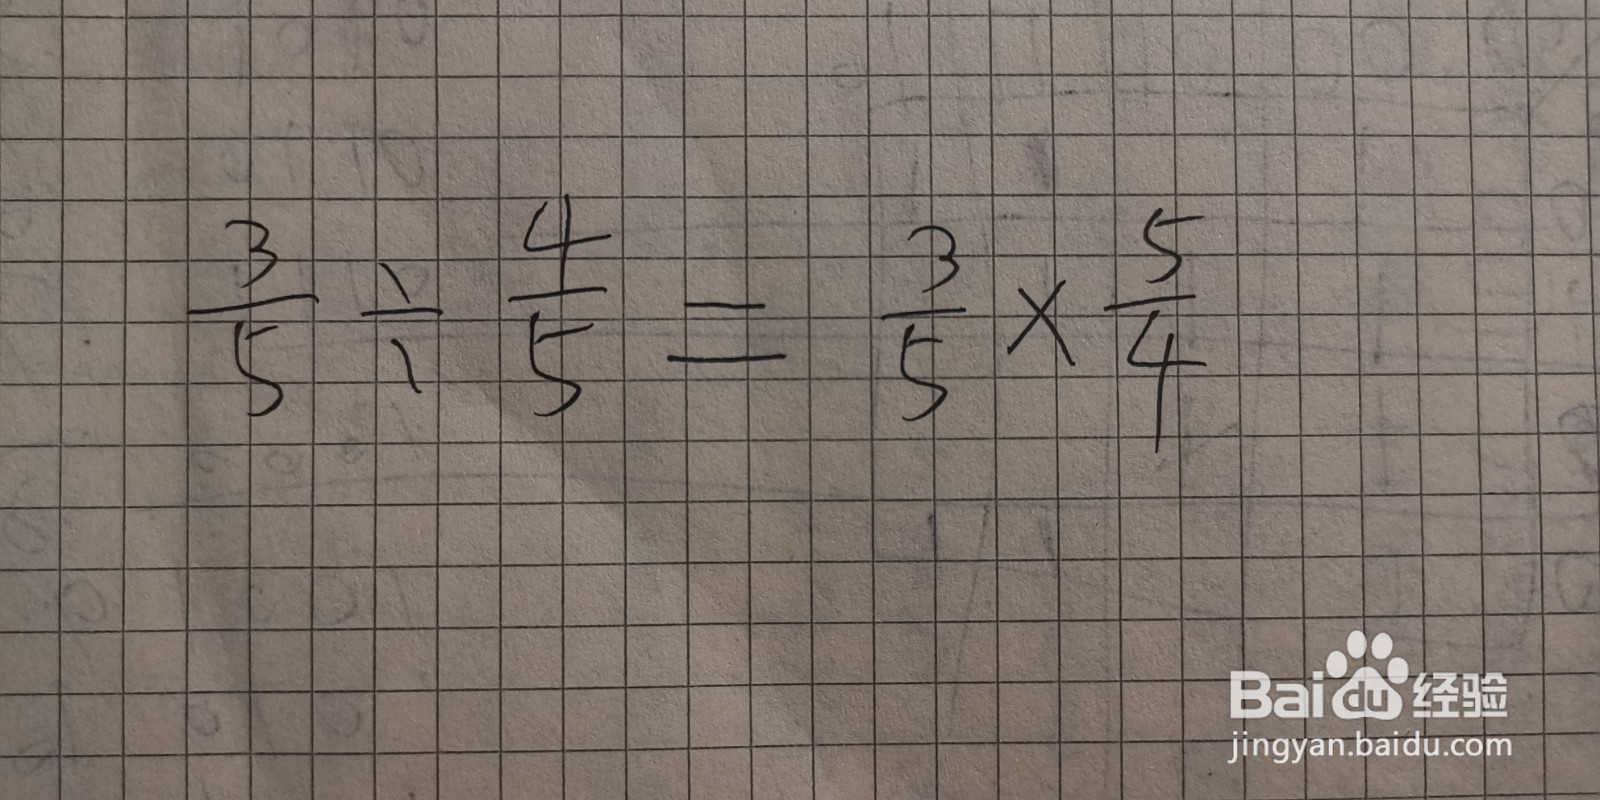 3/5 ÷ 4/5 = 3/5 × 5/4
Bai du 经验
jingyan.baidu.com